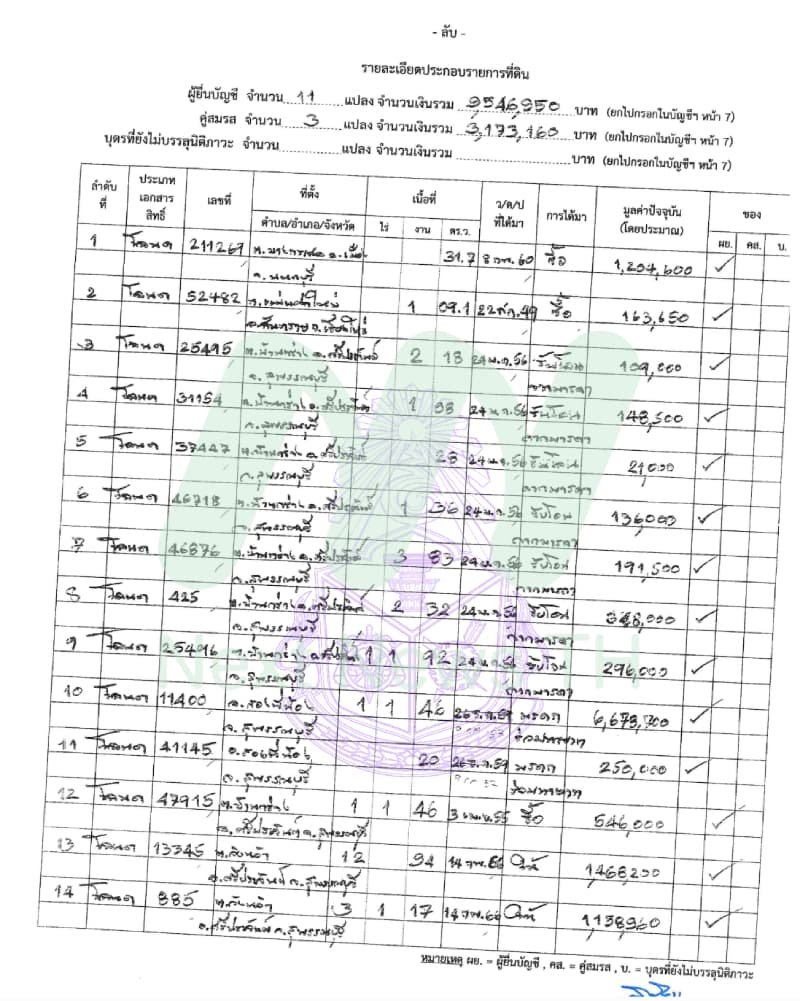 - ลับ -
รายละเอียดประกอบรายการที่ดิน
ผู้ยื่นบัญชี จำนวน 11 แปลง จำนวนเงินรวม 9,546,950 บาท (ยกไปกรอกในบัญชีฯ หน้า 7)
คู่สมรส จำนวน 3 แปลง จำนวนเงินรวม 3,173,160 บาท (ยกไปกรอกในบัญชีฯ หน้า 7)
บุตรที่ยังไม่บรรลุนิติภาวะ จำนวน แปลง จำนวนเงินรวม บาท (ยกไปกรอกในบัญชีฯ หน้า 7)
ลำดับที่ ประเภทเอกสารสิทธิ์ เลขที่ ที่ตั้ง เนื้อที่ ว/ด/ป ที่ได้มา การได้มา มูลค่าปัจจุบัน (โดยประมาณ) ของ
ตำบล/อำเภอ/จังหวัด ไร่ งาน ตร.ว. ผย. คส. บ.
1 โฉนด 211267 อ.เมือง 31.7 8 ก.พ. 60 ซื้อ 1,204,600 ✓
จ.นนทบุรี
2 โฉนด 52482 1 09.1 22 ส.ค. 49 ซื้อ 163,650 ✓
อ.สันทราย จ.เชียงใหม่
3 โฉนด 25495 ต.บ้านกร่าง อ.ศรีประจันต์ 2 18 24 ม.ค. 56 รับโอน 109,000 ✓
จ.สุพรรณบุรี จากมารดา
4 โฉนด 31154 ต.บ้านกร่าง อ.ศรีประจันต์ 1 98 24 ม.ค. 56 รับโอน 148,500 ✓
จ.สุพรรณบุรี จากมารดา
5 โฉนด 37447 ต.บ้านกร่าง อ.ศรีประจันต์ 28 24 ม.ค. 56 รับโอน 21,000 ✓
จ.สุพรรณบุรี จากมารดา
6 โฉนด 46718 ต.บ้านกร่าง อ.ศรีประจันต์ 1 36 24 ม.ค. 56 รับโอน 136,000 ✓
จ.สุพรรณบุรี จากมารดา
7 โฉนด 46876 ต.บ้านกร่าง อ.ศรีประจันต์ 3 83 24 ม.ค. 56 รับโอน 191,500 ✓
จ.สุพรรณบุรี จากมารดา
8 โฉนด 425 ต.บ้านกร่าง อ.ศรีประจันต์ 2 32 24 ม.ค. 56 รับโอน 348,000 ✓
จ.สุพรรณบุรี จากมารดา
9 โฉนด 25496 ต.บ้านกร่าง อ.ศรีประจันต์ 1 1 92 24 ม.ค. 56 รับโอน 296,000 ✓
จ.สุพรรณบุรี จากมารดา
10 โฉนด 11400 อ.สองพี่น้อง 1 1 46 26 59 มรดก 6,678,700 ✓
จ.สุพรรณบุรี
11 โฉนด 41145 อ.สองพี่น้อง 20 26 59 มรดก 250,000 ✓
จ.สุพรรณบุรี
12 โฉนด 47915 ต.บ้านกร่าง 1 1 46 3 เม.ย. 55 ซื้อ 546,000 ✓
อ.ศรีประจันต์ จ.สุพรรณบุรี
13 โฉนด 13345 ต.วังหว้า 12 94 14 ก.พ. 66 ให้ 1,468,200 ✓
อ.ศรีประจันต์ จ.สุพรรณบุรี
14 โฉนด 885 ต.วังหว้า 3 1 17 14 ก.พ. 66 ให้ 1,138,960 ✓
อ.ศรีประจันต์ จ.สุพรรณบุรี
หมายเหตุ ผย. = ผู้ยื่นบัญชี , คส. = คู่สมรส , บ. = บุตรที่ยังไม่บรรลุนิติภาวะ